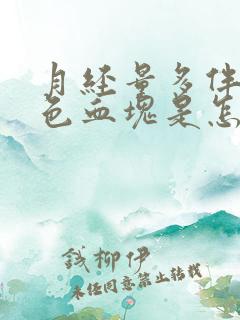 月经量多伴
色血塊是怎
钱柳伊
未经同意禁止转载